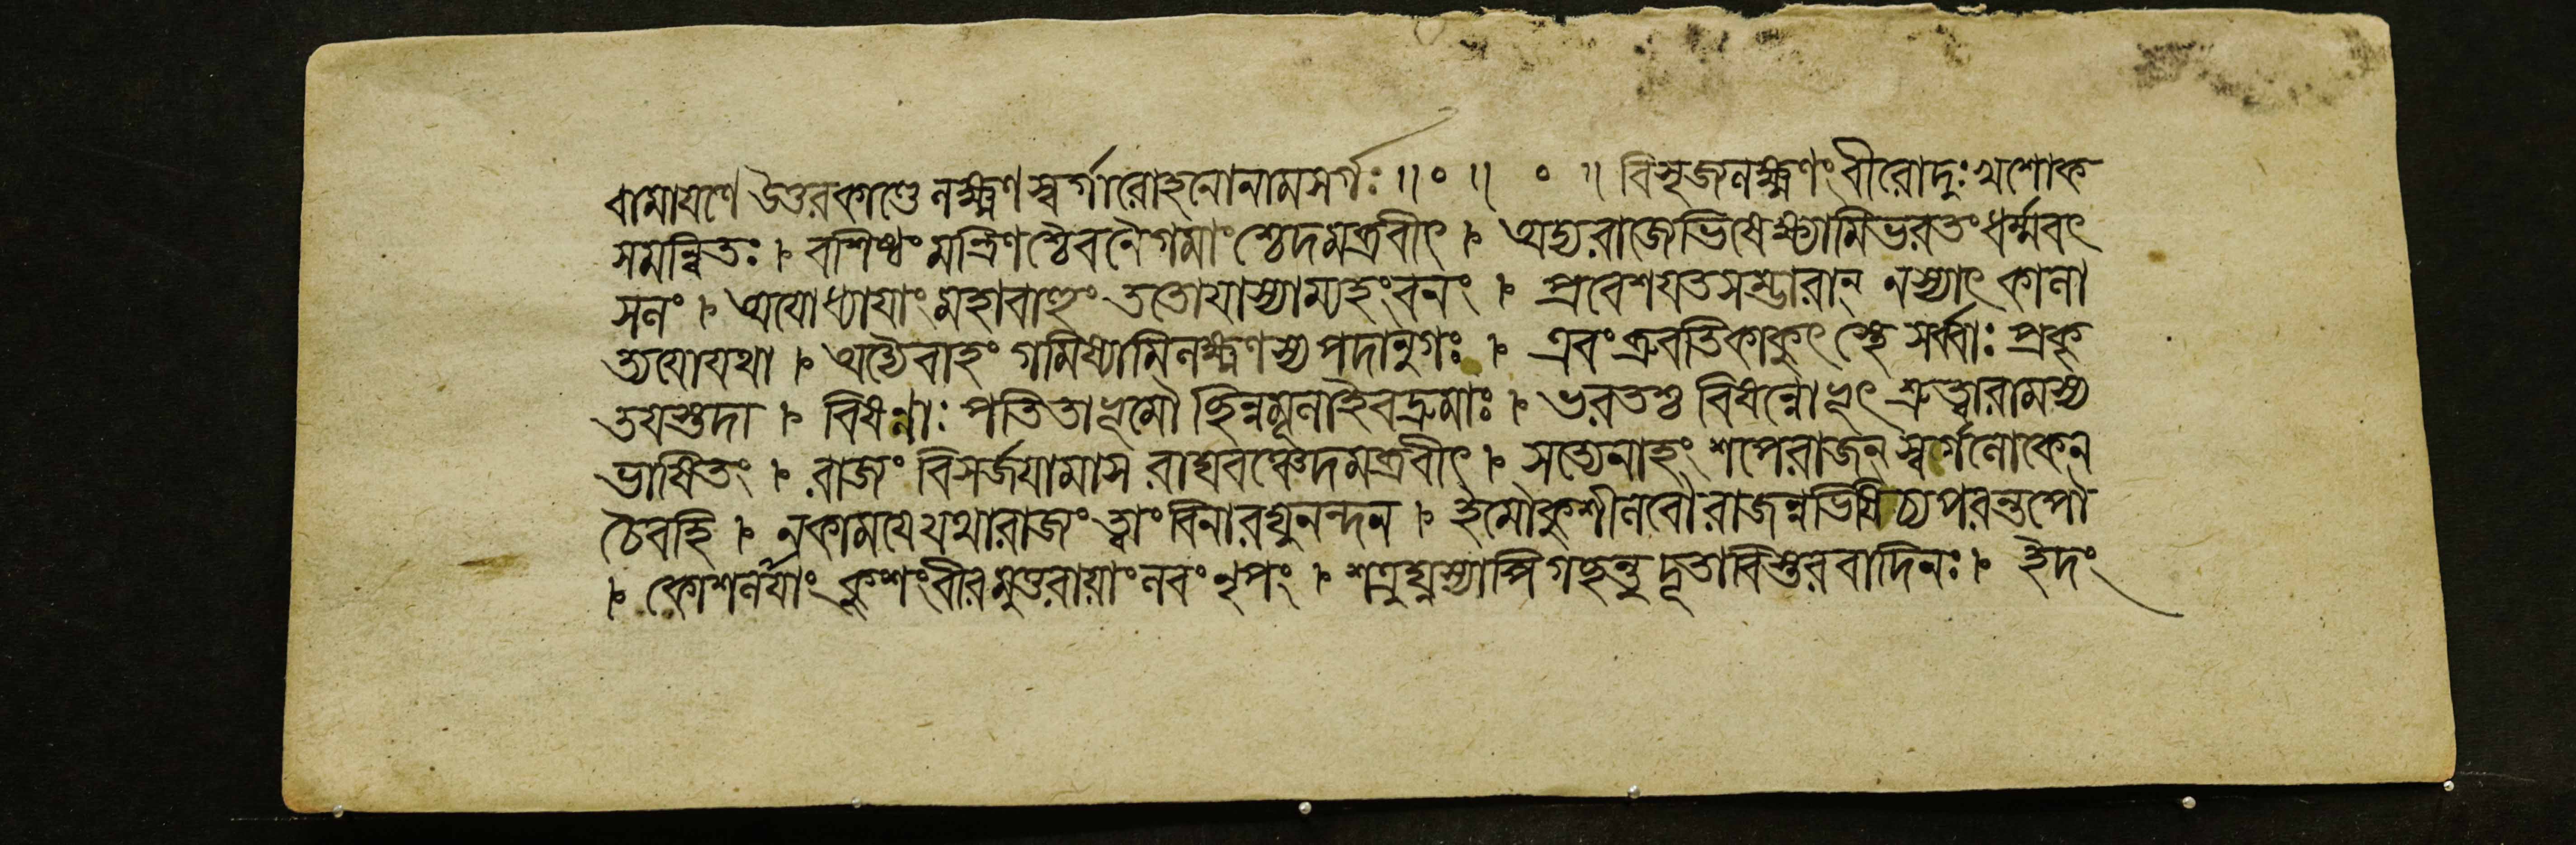 রামায়ণে উত্তরকাণ্ডে লক্ষ্মণস্বর্গারোহনোনামসর্গঃ ॥ ॰ ॥ ॰ ॥ বিসৃজলক্ষ্মণংবীরোদুঃখশোক
সমন্বিতঃ । বশিষ্ঠং মন্ত্রিণশ্চৈবনৈগমাংশ্চেদমব্রবীৎ । অদ্যরাজ্যেভিষেক্ষ্যামিভরতংধর্ম্মবৎ
সলং । অযোধ্যায়াংমহাবাহুং ততোযাস্যাম্যহংবনং । প্রবেশয়তসম্ভারান্ নস্যাৎ কালা
ত্যয়োযথা । অদ্যৈবাহং গমিষ্যামিলক্ষ্মণস্য পদানুগঃ । এবংব্রুবতিকাকুৎস্থে সর্ব্বাঃ প্রকৃ
তয়স্তদা । বিষণ্ণাঃ পতিতাভূমৌ ছিন্নমূলাইবদ্রুমাঃ । ভরতশ্চ বিষন্নোভূৎ শ্রুত্বারামস্য
ভাষিতং । রাজ্যং বিসর্জয়ামাস রাঘবঞ্চেদমব্রবীৎ । সত্যেনাহং শপেরাজন্ স্বর্গেলোকেন
চৈবহি । নকাময়ে যথারাজ্যং ত্বাংবিনারঘুনন্দন । ইমৌকুশীলবৌরাজন্নভিষিচ্যপরন্তপৌ
। কোশলর্যাং কুশংবীরমুত্তরায়াংলবংনৃপং । শত্রুঘ্নস্যাপিগচ্ছন্তু দূতাবিস্তরবাদিনঃ । ইদং